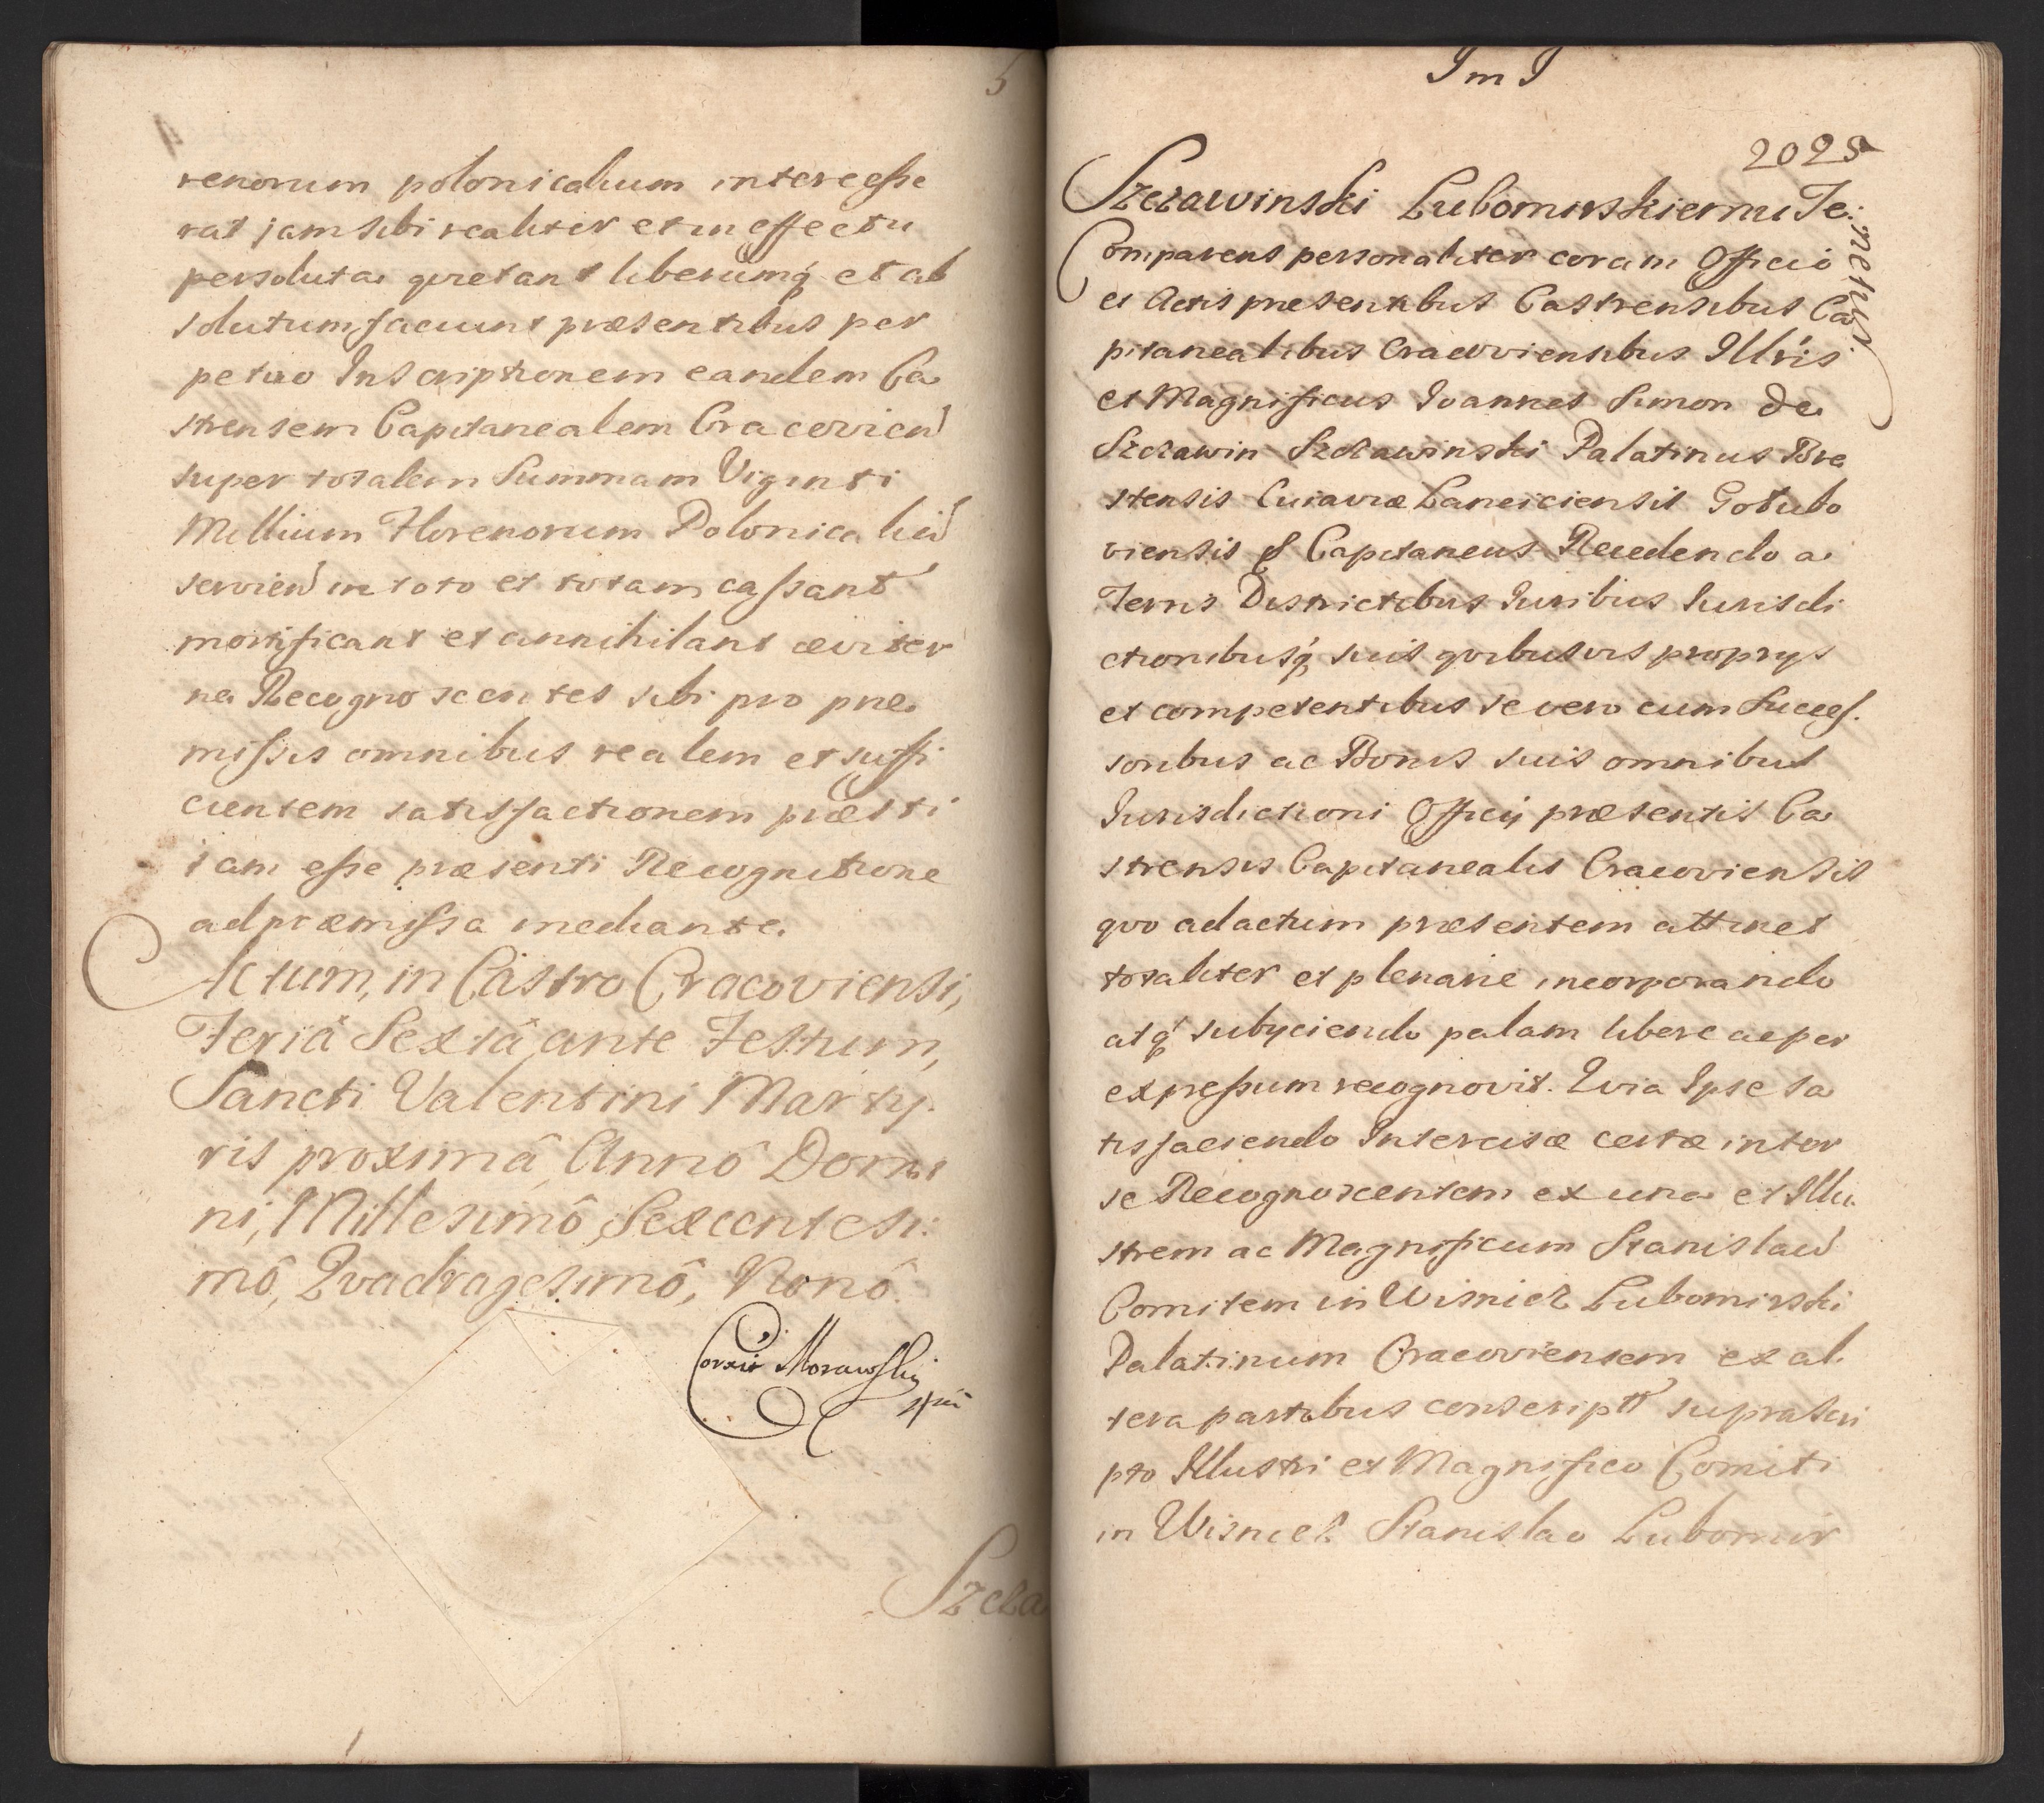 5
renorum polonicalium intereſse
rat jam sibi realiter et in effectu
persoluta qvietant liberumq́ et ab
solutum faciunt præsentibus per
petuo Inscriptionem eandem Ca
strensem Capitanealem Cracovien̄
super totalem Summam Viginti
Millium Florenorum Polonicaliū
servien̄ in toto et totam caſsant
mortificant et annihilant æviter
na Recognoscentes sibi pro præ
miſsis omnibus realem et suffi
cientem satisfactionem præsti
tam eſse præsenti Recognitione
ad præmiſsa mediante.
Actum, in Castro Cracoviensi,
Feriâ Sextâ ante Festum,
Sancti Valentini Marty
ris proximâ Annô Domi
ni, Millesimô Sexcentesi:
mô, Qvadragesimô, Nonô.
Morawsky
Szcza
J m J
2025
Szczawinski Lubomirskiemu Te:
netur.
Comparens personaliter coram Officio
et Actis præsentibus Castrensibus Ca
pitanealibus Cracoviensibus Illr̄is
et Magnificus Ioannes Simon de
Szczawin Szczawinski Palatinus Bre
stensis Cuiaviæ Lanciciensis Gostubo
viensis & Capitaneus Recedendo a
Terris Districtibus Iuribus Iurisdi
ctionibusq́ suis qvibusvis proprys
et competentibus se vero cum Succeſ.
soribus ac Bonis suis omnibus
Iurisdictioni Officij præsentis Ca
strensis Capitanealis Cracoviensis
qvo ad actum præsentem attinet
totaliter et plenarie incorporando
atq́ subyciendo palam libere ac per
expreſsum recognovit. Qvia Ipse sa
tisfaciendo Intercisæ certæ inter
se Recognoscentem ex una et Illu
strem ac Magnificum Stanislaū
Comitem in Wisnicz Lubomirski
Palatinum Cracoviensem ex al.
tera partibus conscript̄ suprascri
pto Illustri et Magnifico Comiti
in Wisnicz Stanislao Lubomir